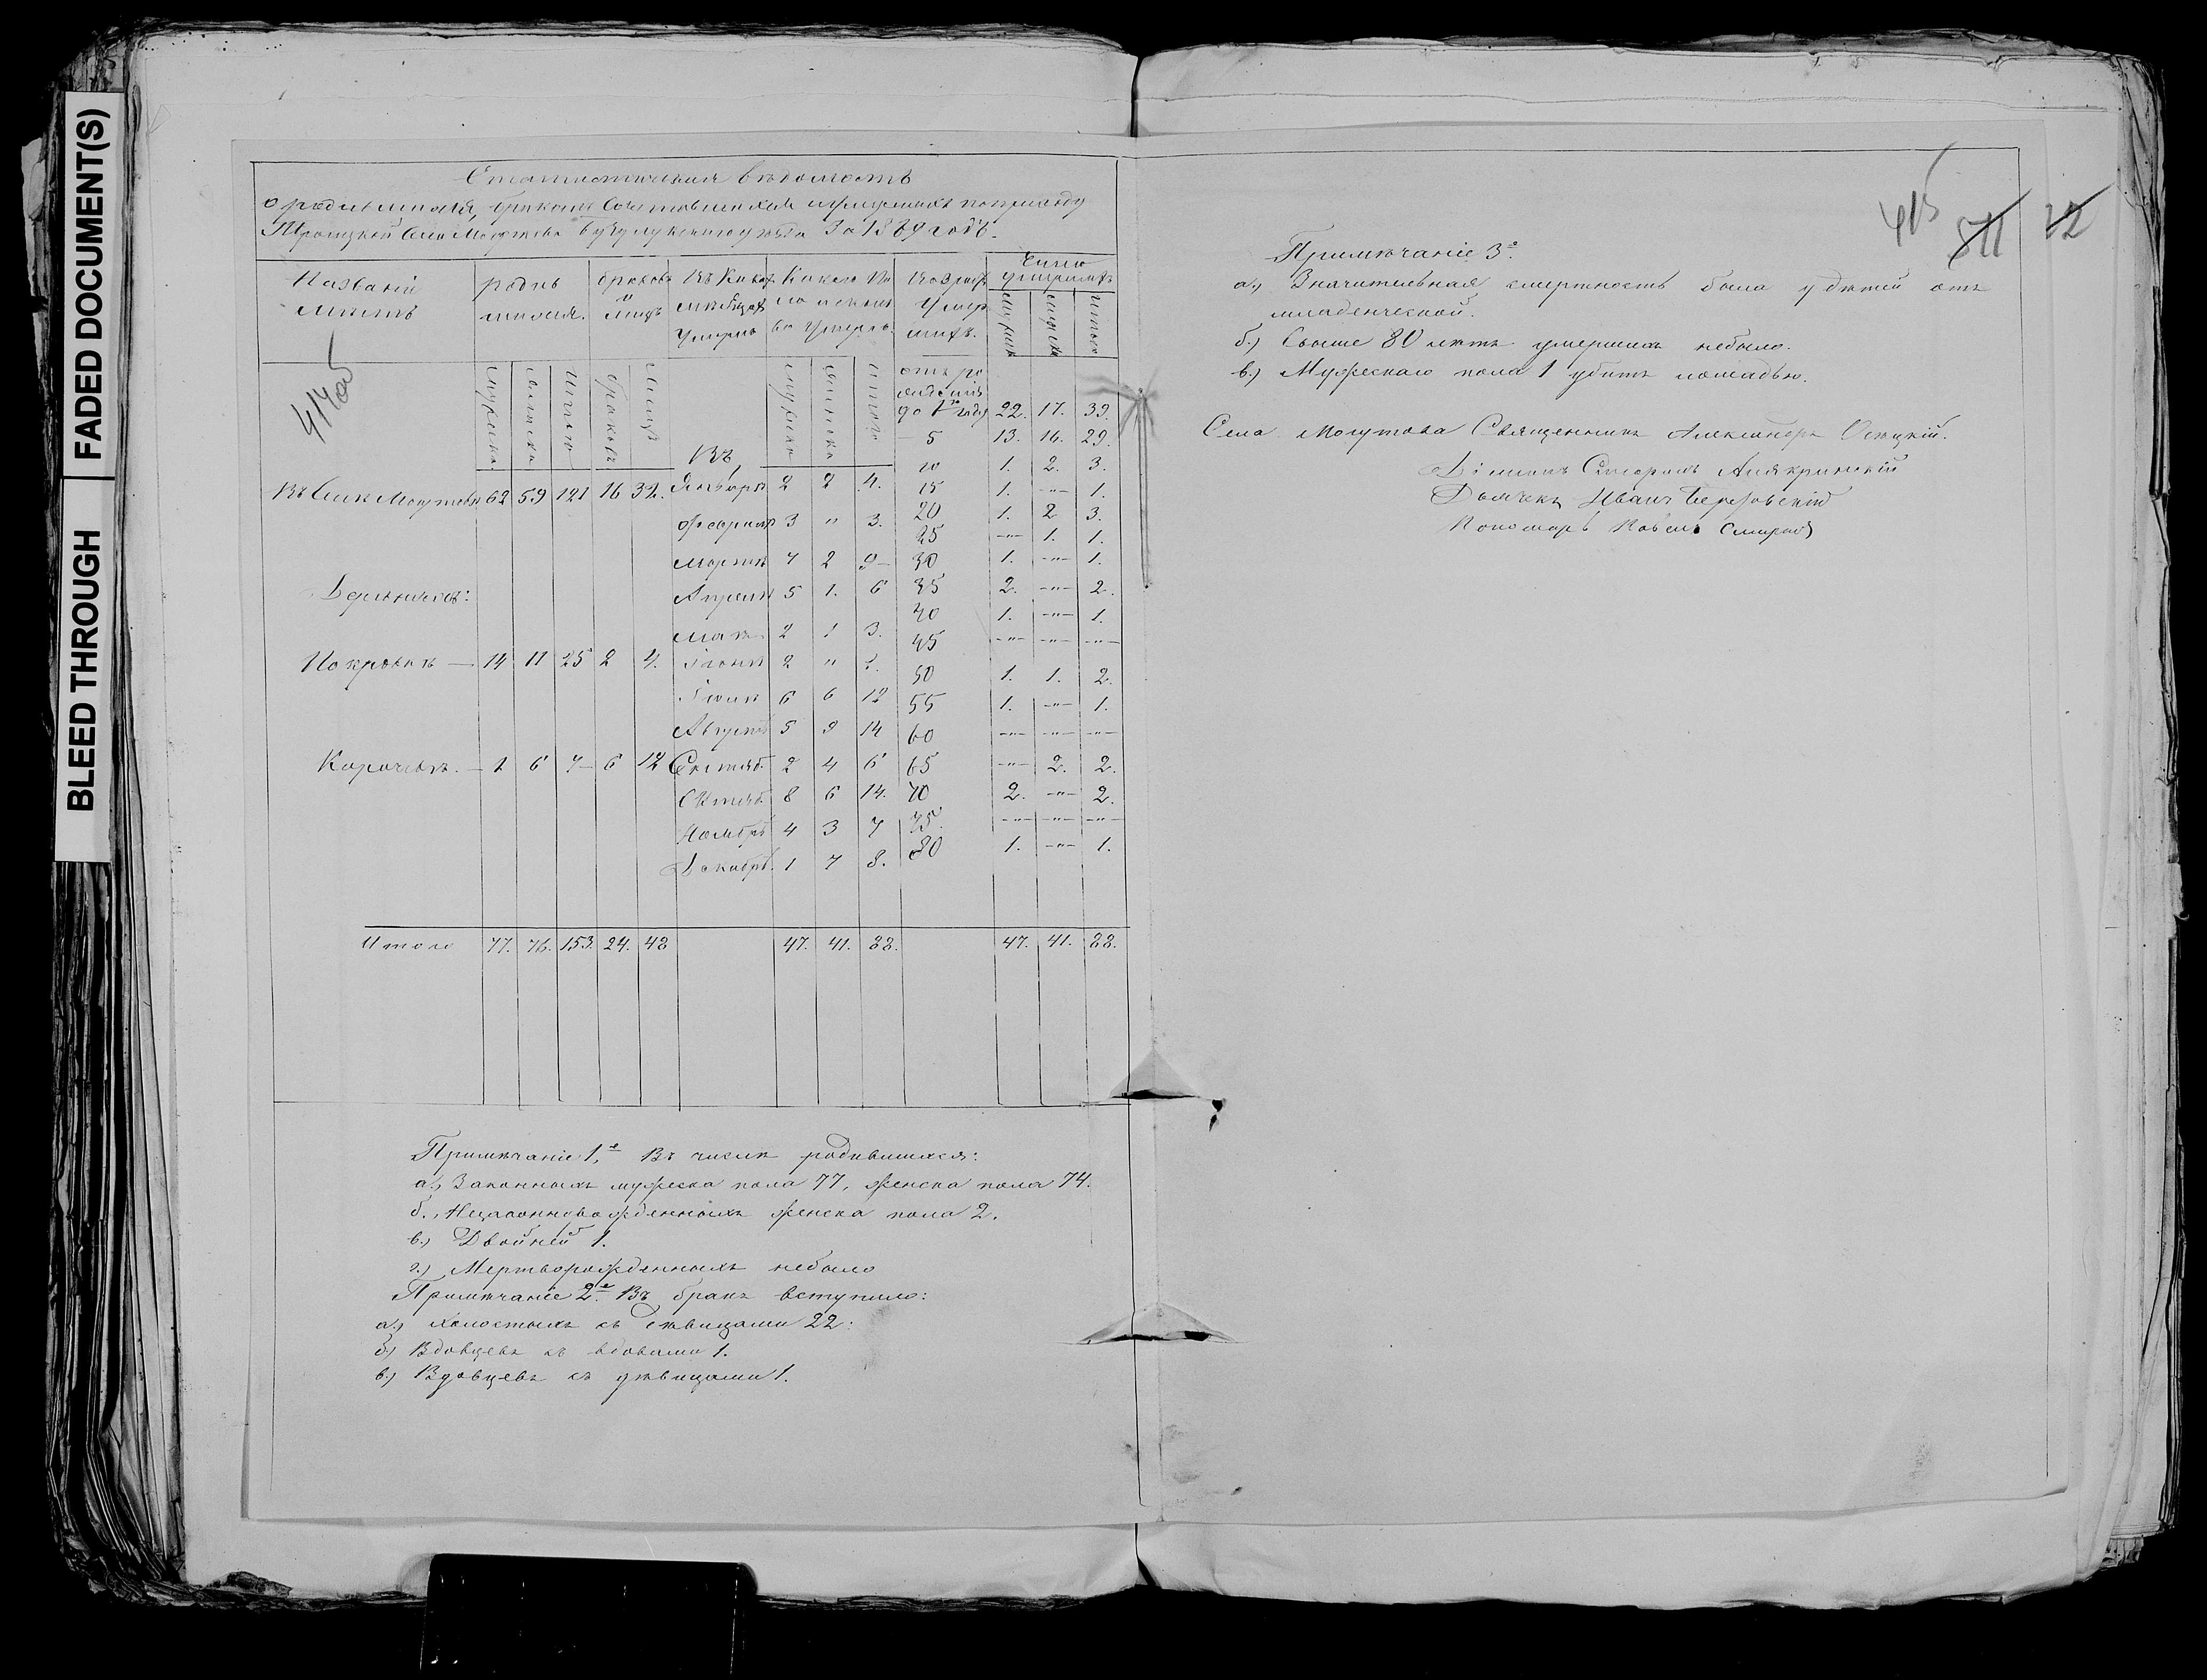 FADED DOCUMENT(S)
BLEED THROUGH
Статистическая вѣдомость
о родившихся, бракомъ сочетавшихся и умершихъ по приходу
Троицкой села Могутова Бузулукскаго уѣзда за 1869 годъ.
Названій мѣстъ | родившихся. | браковъ и лицъ | Въ какихъ мѣсяцахъ умерло | Какого пола и сколько умерло | Возрастъ умершихъ. | Число умершихъ
мужеска | женска | Итого | браковъ | лицъ | Въ | мужеска | женска | итого | отъ рожденія до 1го года | 22. | 17. | 39.
414об
5 | 13. | 16. | 29.
10 | 1. | 2. | 3.
Въ Селѣ Могутовѣ | 62 | 59 | 121 | 16 | 32. | Январѣ | 2 | 2 | 4. | 15 | 1. | -"- | 1.
Февралѣ | 3 | " | 3. | 20 | 1. | 2 | 3.
25 | -"- | 1. | 1.
Мартѣ | 7 | 2 | 9 | 30 | 1. | -"- | 1.
Деревняхъ: | Апрелѣ | 5 | 1. | 6 | 35 | 2. | -"- | 2.
40 | 1. | -"- | 1.
Маѣ | 2 | 1 | 3. | 45 | -"- | -"- | -"-
Покровкѣ — | 14 | 11 | 25 | 2 | 4. | Іюнѣ | 2 | " | 2. | 50 | 1. | 1. | 2.
Іюлѣ | 6 | 6 | 12 | 55 | 1. | -"- | 1.
Августѣ | 5 | 9 | 14 | 60 | -"- | -"- | -"-
— | 1 | 6 | 7 | 6 | 12 | Сентяб. | 2 | 4 | 6 | 65 | -"- | 2. | 2.
Октяб. | 8 | 6 | 14. | 70 | 2. | -"- | 2.
Ноябрѣ | 4 | 3 | 7 | 75. | -"- | -"- | -"-
Декабрѣ. | 1 | 7 | 8. | 80 | 1. | -"- | 1.
Итого | 77. | 76. | 153. | 24. | 48 | 47. | 41. | 88. | 47. | 41. | 88.
Примѣчаніе 1,е Въ числѣ родившихся:
а, Законныхъ мужеска пола 77, женска пола 74.
б., Незаконнорожденныхъ женска пола 2.
в.) Двойней 1.
г.) Мертворожденныхъ небыло
Примѣчаніе 2.е Въ бракъ вступило:
а.) Холостыхъ съ дѣвицами 22:
б) Вдовцевъ съ вдовами 1.
в.) Вдовцевъ съ дѣвицами 1.
415 811 32
Примѣчаніе 3.е
а.) Значительная смертность была у дѣтей отъ
младенческой.
б.) Свыше 80 лѣтъ умершихъ небыло.
в.) Мужескаго пола 1 убитъ лошадью.
Села Могутова Священникъ Александръ
Діаконъ
Дьячекъ Иванъ
Пономарь Павелъ Смирнов